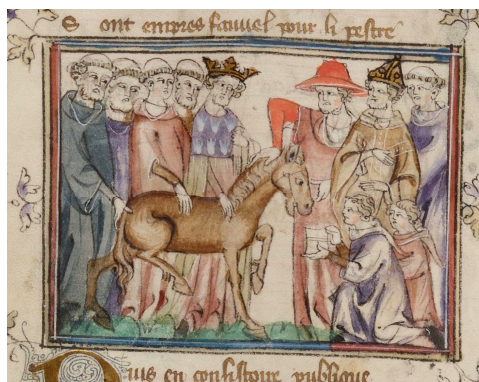 Sont empres fauvel pour li pestre
Puis en consistoire publique